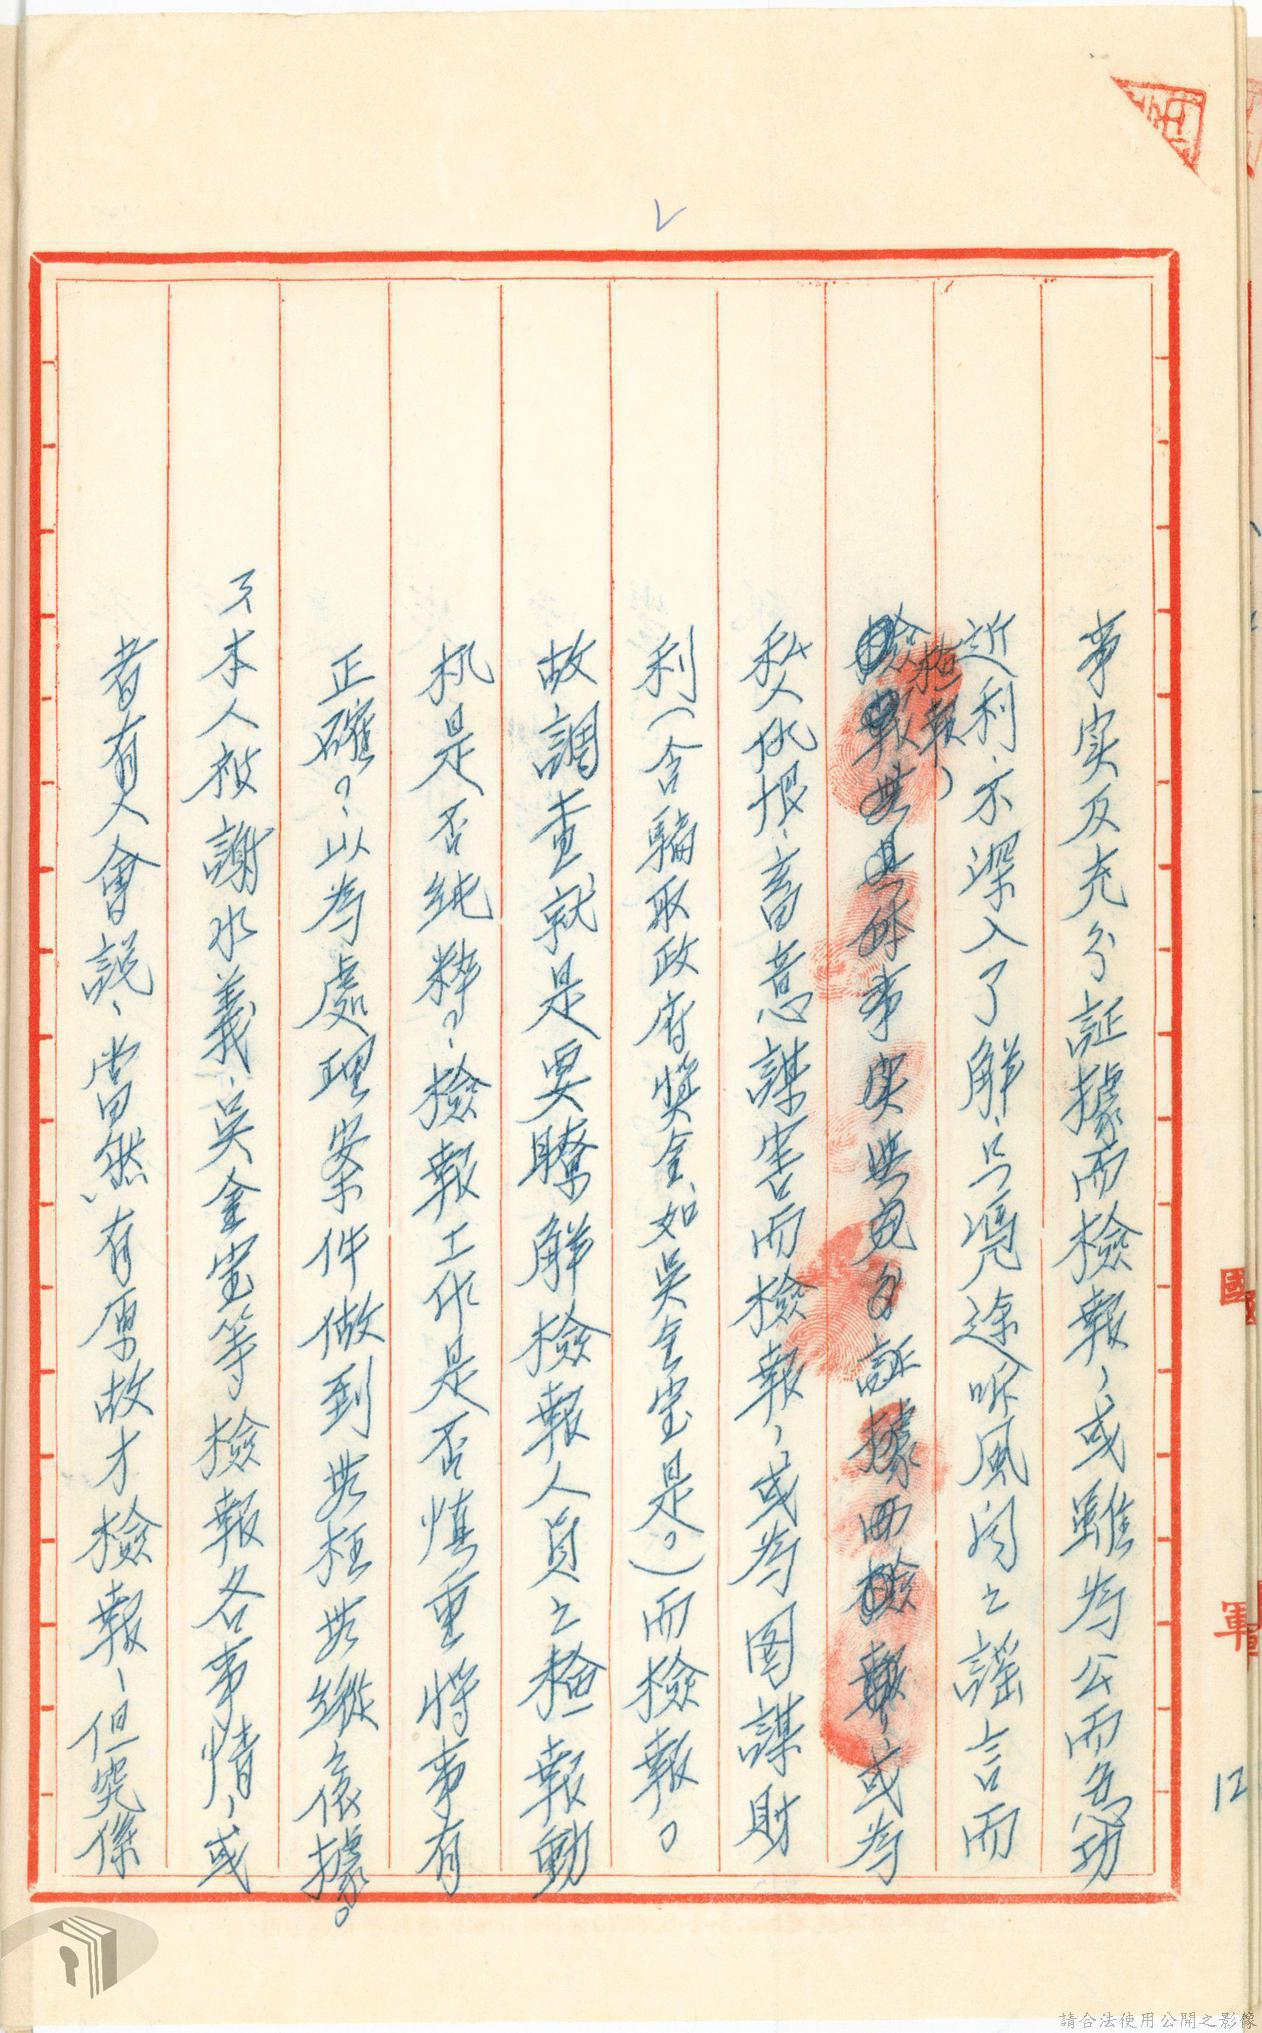 事实及充分証據而檢報，或雖為公而急功
近利、不深入了解、只憑途听風闻之謠言而
檢報，
檢報無具体事实與充分証據而檢報，或為
私人仇恨、蓄意謀害而檢報，或為图謀財
利（含騙取政府獎金如吳金宝是。）而檢報。
故調查就是要瞭解檢報人員之檢報動
机是否純粹？檢報工作是否慎重將事有
正確？以為處理案件做到無枉無縱依據。
3、本人被謝水義、吳金宝等檢報各事情，或
者有人會說、當然有原故才檢報、但究係
國
軍
12
請合法使用公開之影像